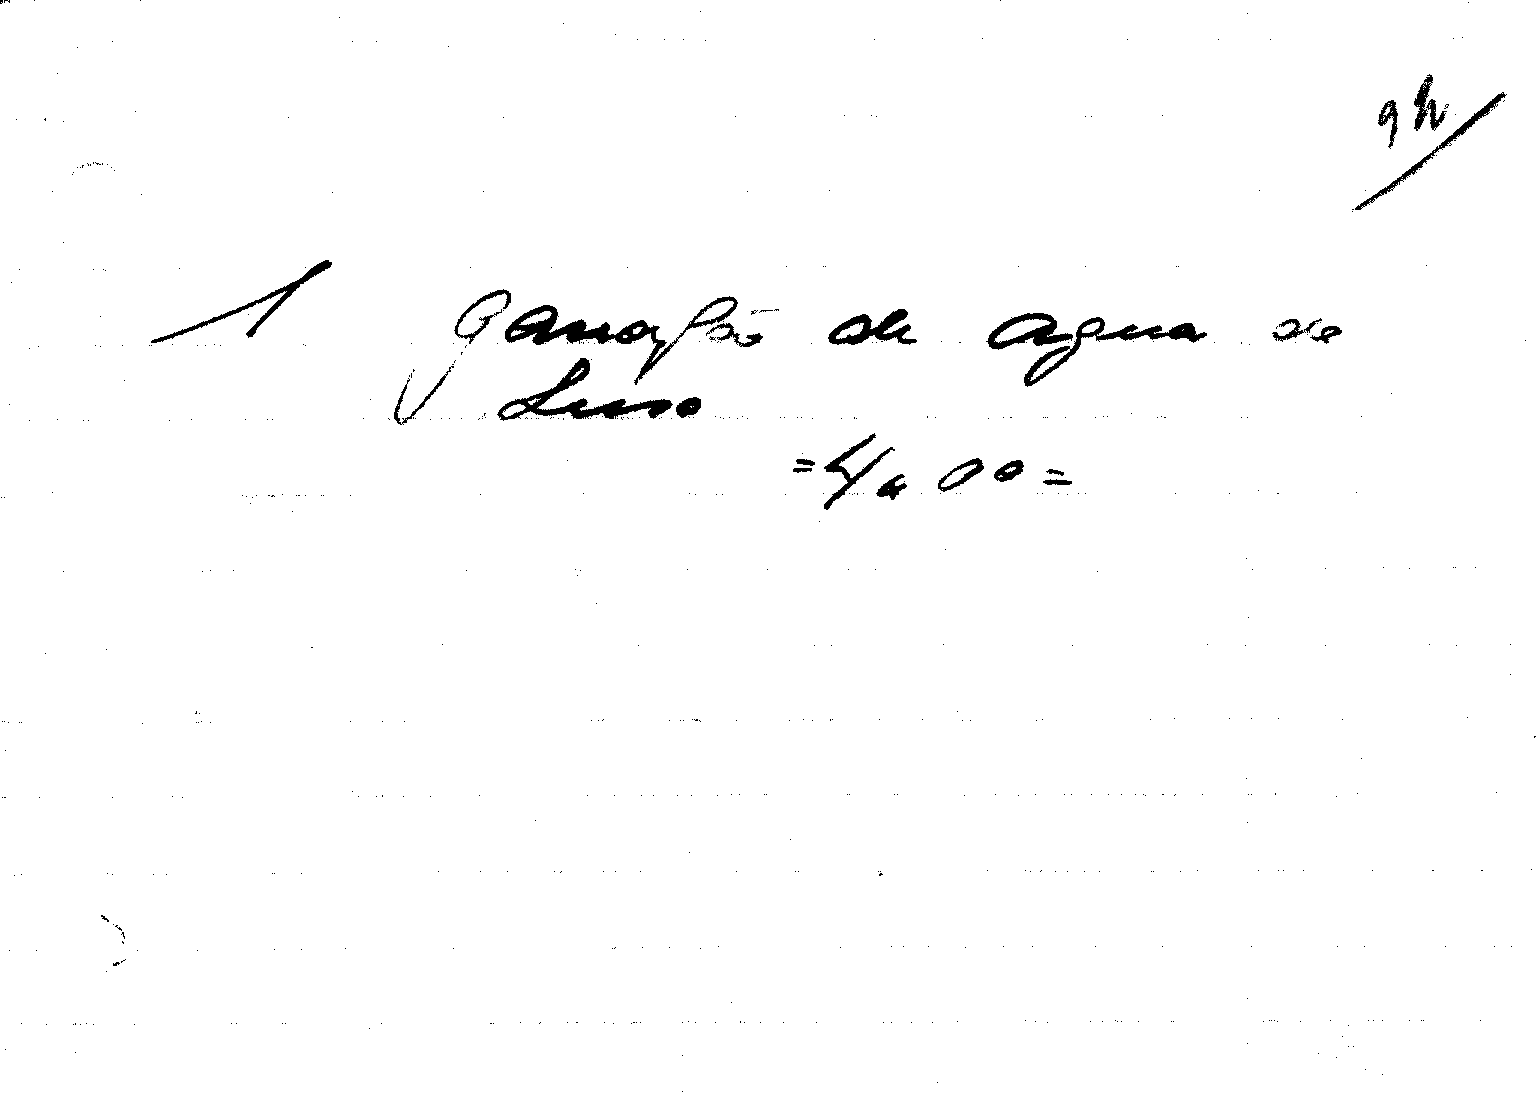 94
1 Garrafão de agua de
Luso
=4,00=